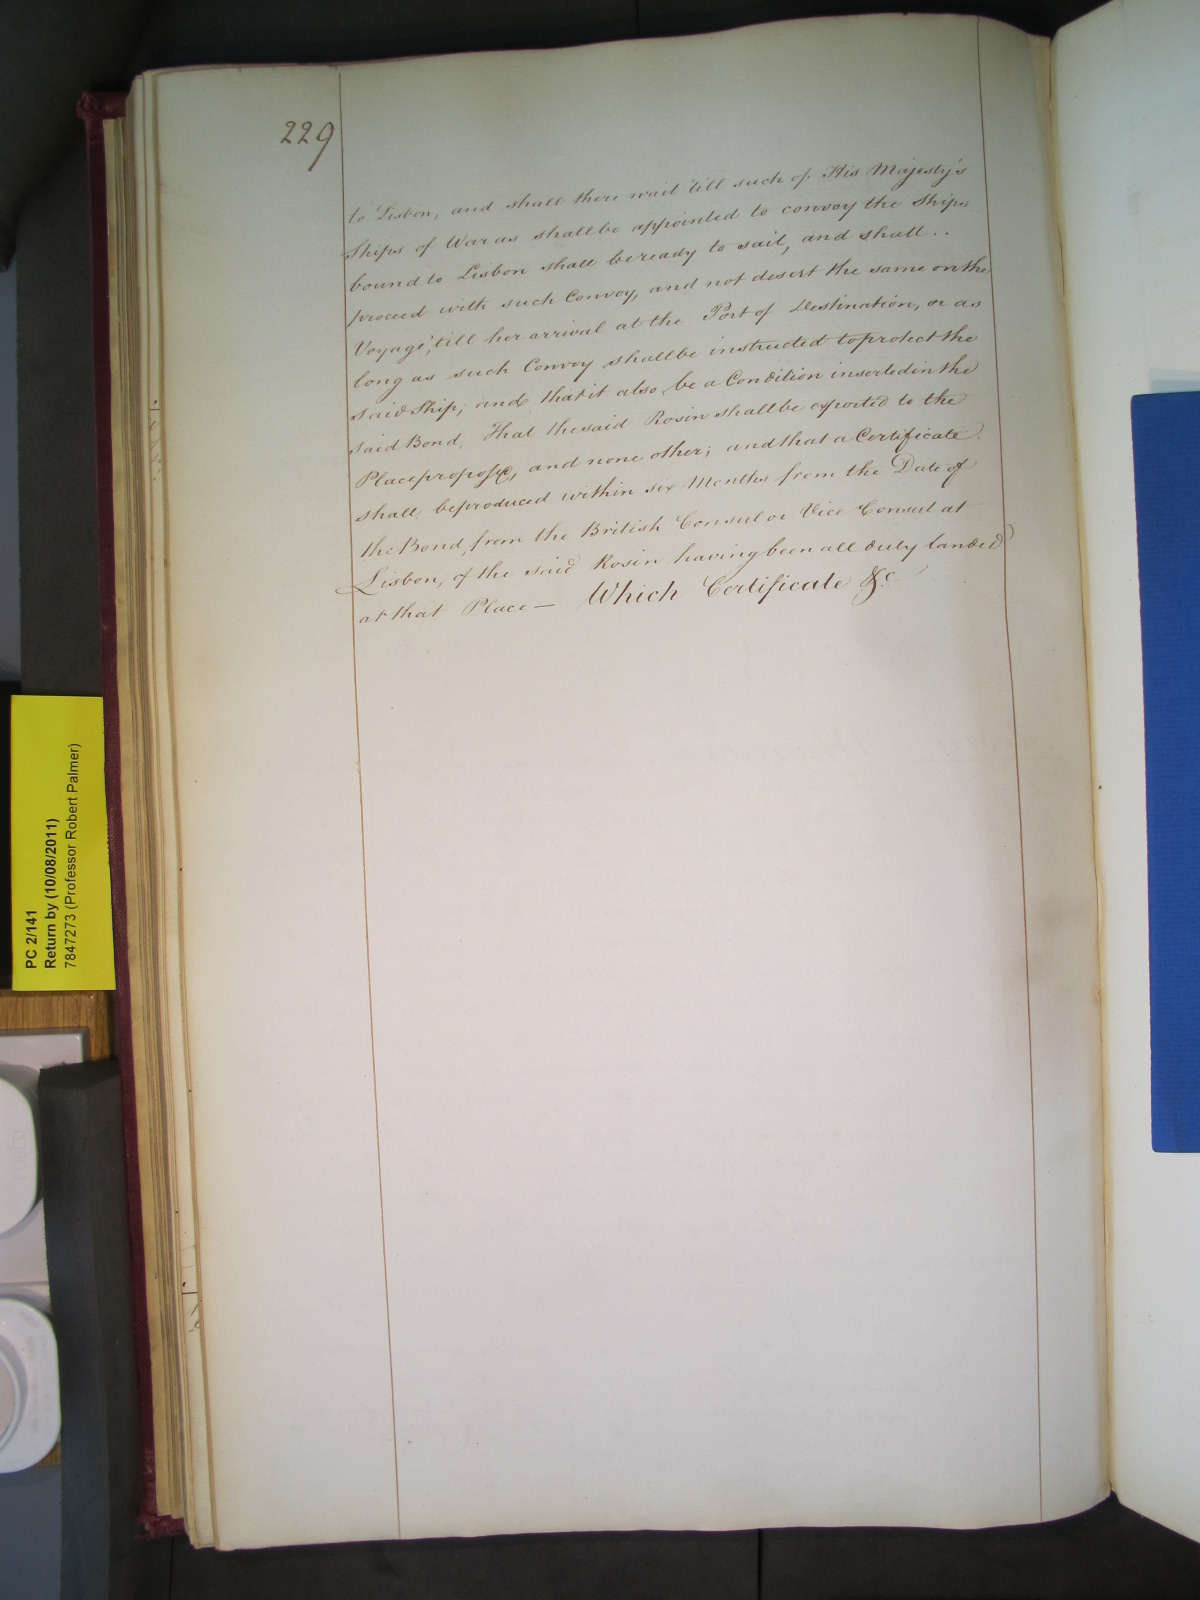 229
to Lisbon, and shall there wait 'till such of His Majesty's
Ships of War as shall be appointed to convoy the Ships
bound to Lisbon shall be ready to sail, and shall . .
proceed with such Convoy, and not desert the same on the
Voyage, till her arrival at the Port of Destination, or as
long as such Convoy shall be instructed to protect the
said Ship; and that it also be a Condition inserted in the
said Bond, That the said Rosin shall be exported to the
Place proposed, and none other; and that a Certificate
shall be produced within six Months from the Date of
the Bond, from the British Consul or Vice Consul at
Lisbon, of the said Rosin having been all duly landed
at that Place — Which Certificate &c.
PC 2/141
Return by (10/08/2011)
7847273 (Professor Robert Palmer)